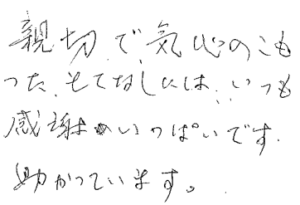 親切で気心のこも
った.もてなしには.いつも
感謝のいっぱいです.
助かっています。